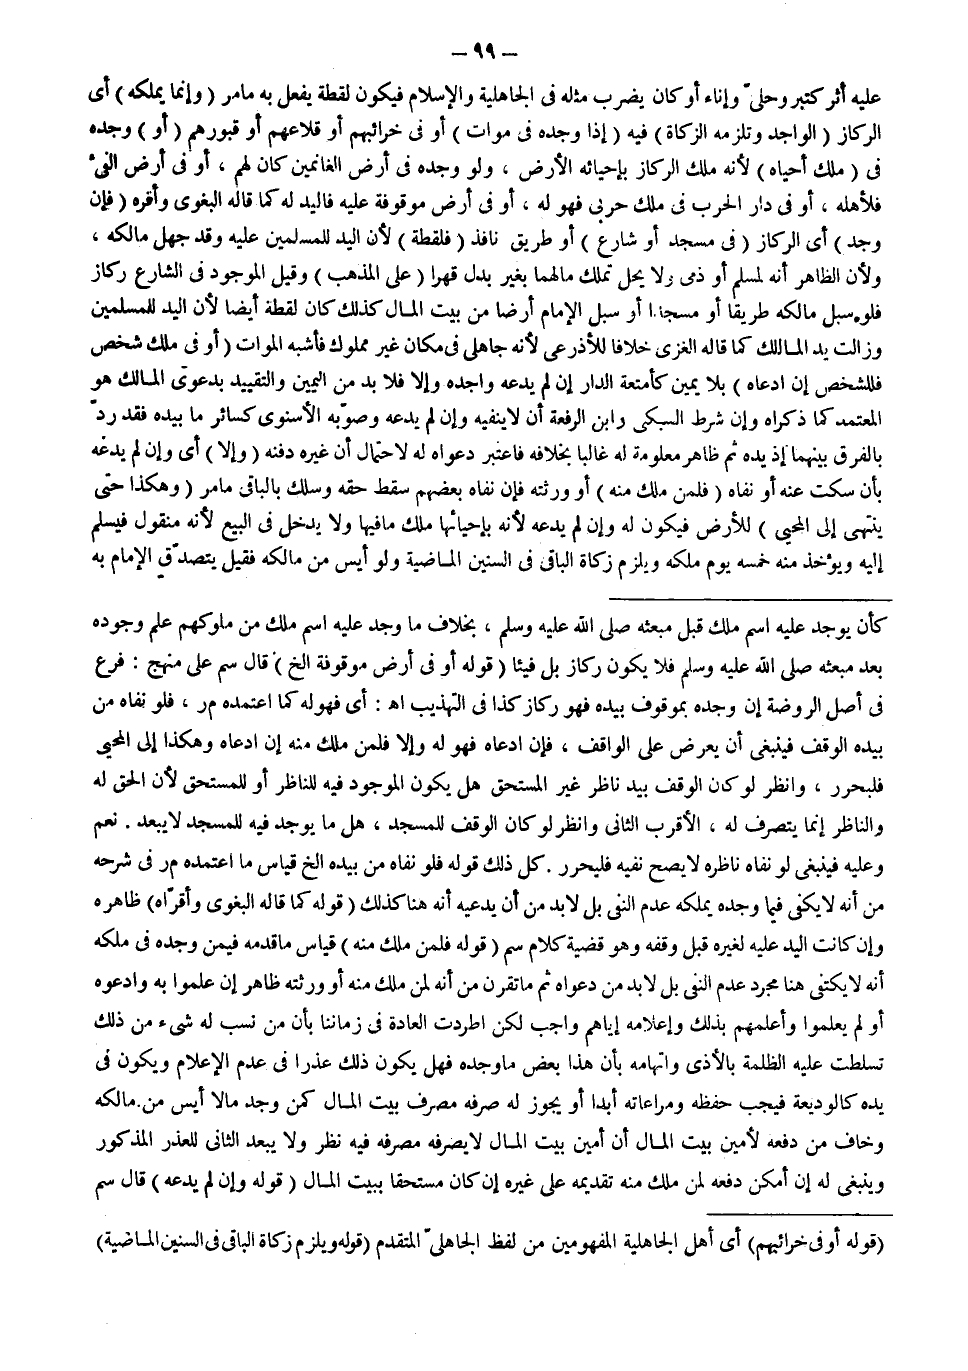 – ٩٩ –
عليه أثر كتبر وحلىّ وإناء أو كان يضرب مثله فى الجاهلية والإسلام فيكون لقطة يفعل به مامر ( وإنما يملكه ) أى
الركاز ( الواجد وتلزمه الزكاة ) فيه ( إذا وجده فى موات ) أو فى خرائبهم أو قلاعهم أو قبورهم ( أو ) وجده
فى ( ملك أحياه ) لأنه ملك الركاز بإحيائه الأرض ، ولو وجده فى أرض الغانمين كان لهم ، أو فى أرض الفىء
فلأهله ، أو فى دار الحرب فى ملك حربى فهو له ، أو فى أرض موقوفة عليه فاليد له كما قاله البغوى وأقره ( فإن
وجد ) أى الركاز ( فى مسجد أو شارع ) أو طريق نافذ ( فلقطة ) لأن اليد للمسلمين عليه وقد جهل مالكه ،
ولأن الظاهر أنه لمسلم أو ذمى ولا يحل تملك مالهما بغير بدل قهرا ( على المذهب ) وقيل الموجود فى الشارع ركاز
فلو سبل مالكه طريقا أو مسجدا أو سبل الإمام أرضا من بيت المال كذلك كان لقطة أيضا لأن اليد للمسلمين
وزالت يد المالك كما قاله الغزى خلافا للأذرعى لأنه جاهلى فى مكان غير مملوك فأشبه الموات ( أو فى ملك شخص
فللشخص إن ادعاه ) بلا يمين كأمتعة الدار إن لم يدعه واجده وإلا فلا بد من اليمين والتقييد بدعوى المالك هو
المعتمد كما ذكراه وإن شرط السبكى وابن الرفعة أن لاينفيه وإن لم يدعه وصوّبه الأسنوى كسائر ما بيده فقد ردّ
بالفرق بينهما إذ يده ثم ظاهر معلومة له غالبا بخلافه فاعتبر دعواه له لاحتمال أن غيره دفنه ( وإلا ) أى وإن لم يدعه
بأن سكت عنه أو نفاه ( فلمن ملك منه ) أو ورثته فإن نفاه بعضهم سقط حقه وسلك بالباقى مامر ( وهكذا حتى
ينتهى إلى المحيى ) للأرض فيكون له وإن لم يدعه لأنه بإحيائها ملك مافيها ولا يدخل فى البيع لأنه منقول فيسلم
إليه ويؤخذ منه خمسه يوم ملكه ويلزم زكاة الباقى فى السنين الماضية ولو أيس من مالكه فقيل يتصدّق الإمام به
كأن يوجد عليه اسم ملك قبل مبعثه صلى الله عليه وسلم ، بخلاف ما وجد عليه اسم ملك من ملوكهم علم وجوده
بعد مبعثه صلى الله عليه وسلم فلا يكون ركاز بل فيئا ( قوله أو فى أرض موقوفة الخ ) قال سم على منهج : فرع
فى أصل الروضة إن وجده بموقوف بيده فهو ركاز كذا فى التهذيب اه : أى فهوله كما اعتمده مر ، فلو نفاه من
بيده الوقف فينبغى أن يعرض على الواقف ، فإن ادعاه فهو له وإلا فلمن ملك منه إن ادعاه وهكذا إلى المحيى
فليحرر ، وانظر لو كان الوقف بيد ناظر غير المستحق هل يكون الموجود فيه للناظر أو للمستحق لأن الحق له
والناظر إنما يتصرف له ، الأقرب الثانى وانظر لو كان الوقف للمسجد ، هل ما يوجد فيه للمسجد لايبعد . نعم
وعليه فينبغى لو نفاه ناظره لايصح نفيه فليحرر . كل ذلك قوله فلو نفاه من بيده الخ قياس ما اعتمده مر فى شرحه
من أنه لايكفى فيما وجده بملكه عدم النفى بل لابد من أن يدعيه أنه هنا كذلك ( قوله كما قاله البغوى وأقرّاه) ظاهره
وإن كانت اليد عليه لغيره قبل وقفه وهو قضية كلام سم ( قوله فلمن ملك منه ) قياس ماقدمه فيمن وجده فى ملكه
أنه لايكتفى هنا مجرد عدم النفى بل لابد من دعواه ثم ماتقرن من أنه لمن ملك منه أو ورثته ظاهر إن علموا به وادعوه
أو لم يعلموا وأعلمهم بذلك وإعلامه إياهم واجب لكن اطردت العادة فى زماننا بأن من نسب له شىء من ذلك
تسلطت عليه الظلمة بالأذى واتهامه بأن هذا بعض ماوجده فهل يكون ذلك عذرا فى عدم الإعلام ويكون فى
يده كالوديعة فيجب حفظه ومراعاته أبدا أو يجوز له صرفه مصرف بيت المال كمن وجد مالا أيس من مالكه
وخاف من دفعه لأمين بيت المال أن أمين بيت المال لايصرفه مصرفه فيه نظر ولا يبعد الثانى للعذر المذكور
وينبغى له إن أمكن دفعه لمن ملك منه تقديمه على غيره إن كان مستحقا ببيت المال ( قوله وإن لم يدعه ) قال سم
(قوله أو فى خرائبهم) أى أهل الجاهلية المفهومين من لفظ الجاهلىّ المتقدم (قوله ويلزم زكاة الباقى فى السنين الماضية)